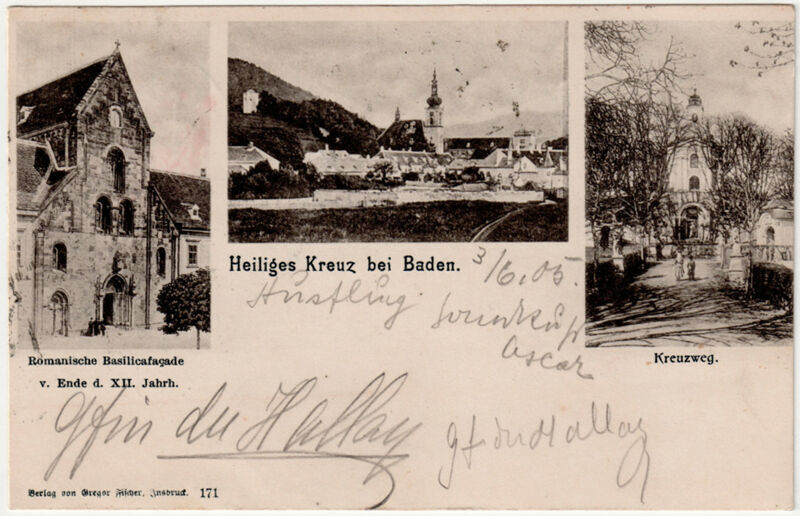 Heiliges Kreuz bei Baden.
3/6.05.
Ausflug
Oscar
Romanische Basilicafaçade
v. Ende d. XII. Jahrh.
Kreuzweg.
Gfin du Hallay
Gfinduhallay
Verlag von Gregor Fischer, Innsbruck. 171